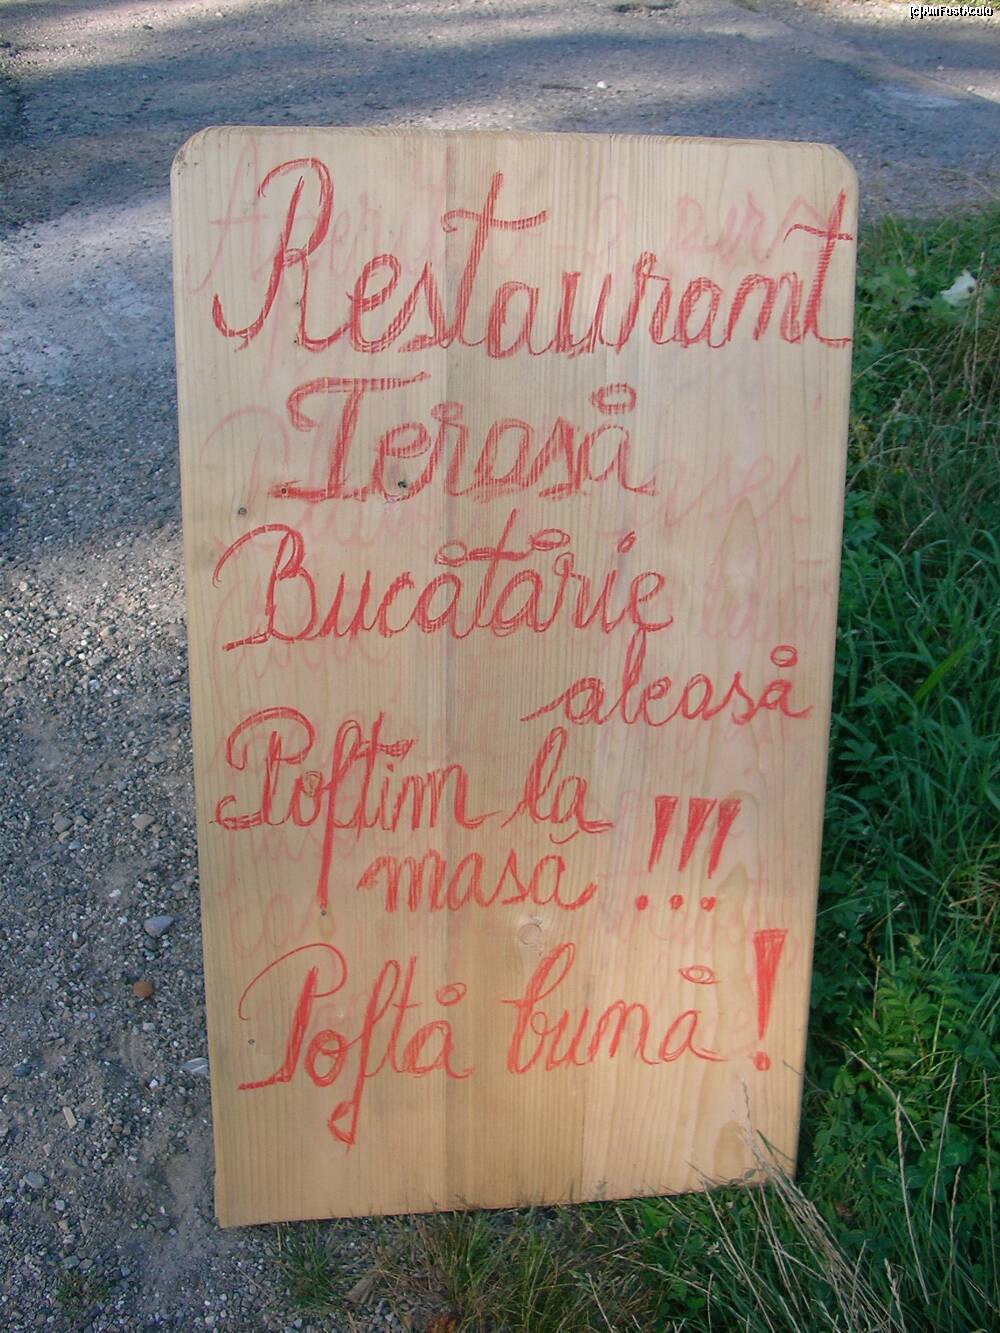 [c]AmFostAcolo
Restaurant
Terasă
Bucătărie
aleasă
Poftim la
masă !!!
Poftă bună!